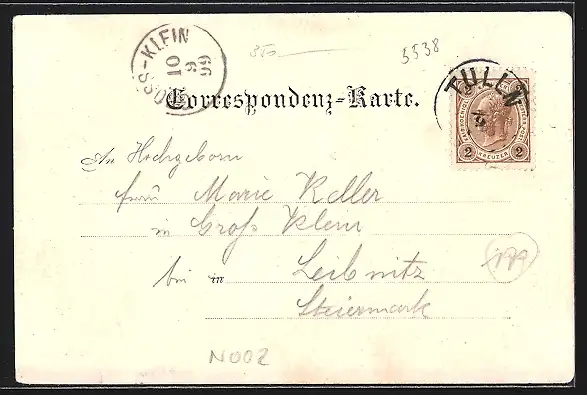 OSS-KLEIN
10
9
99
350
5538
TULLN
2 KREUZER 2
Correspondenz-Karte.
An Hochgeborn
Frau Marie Keller
in Groß Klein
bei in Leibnitz
Steiermark
199
N002